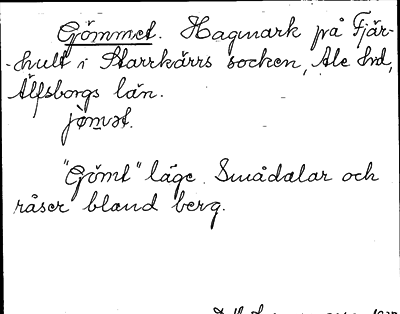 Gömmet. Hagmark på Fjär-
-hult i Starrkärrs socken, Ale hd,
Älfsborgs län.
jömət.
"Gömt" läge. Smådalar och
råser bland berg.